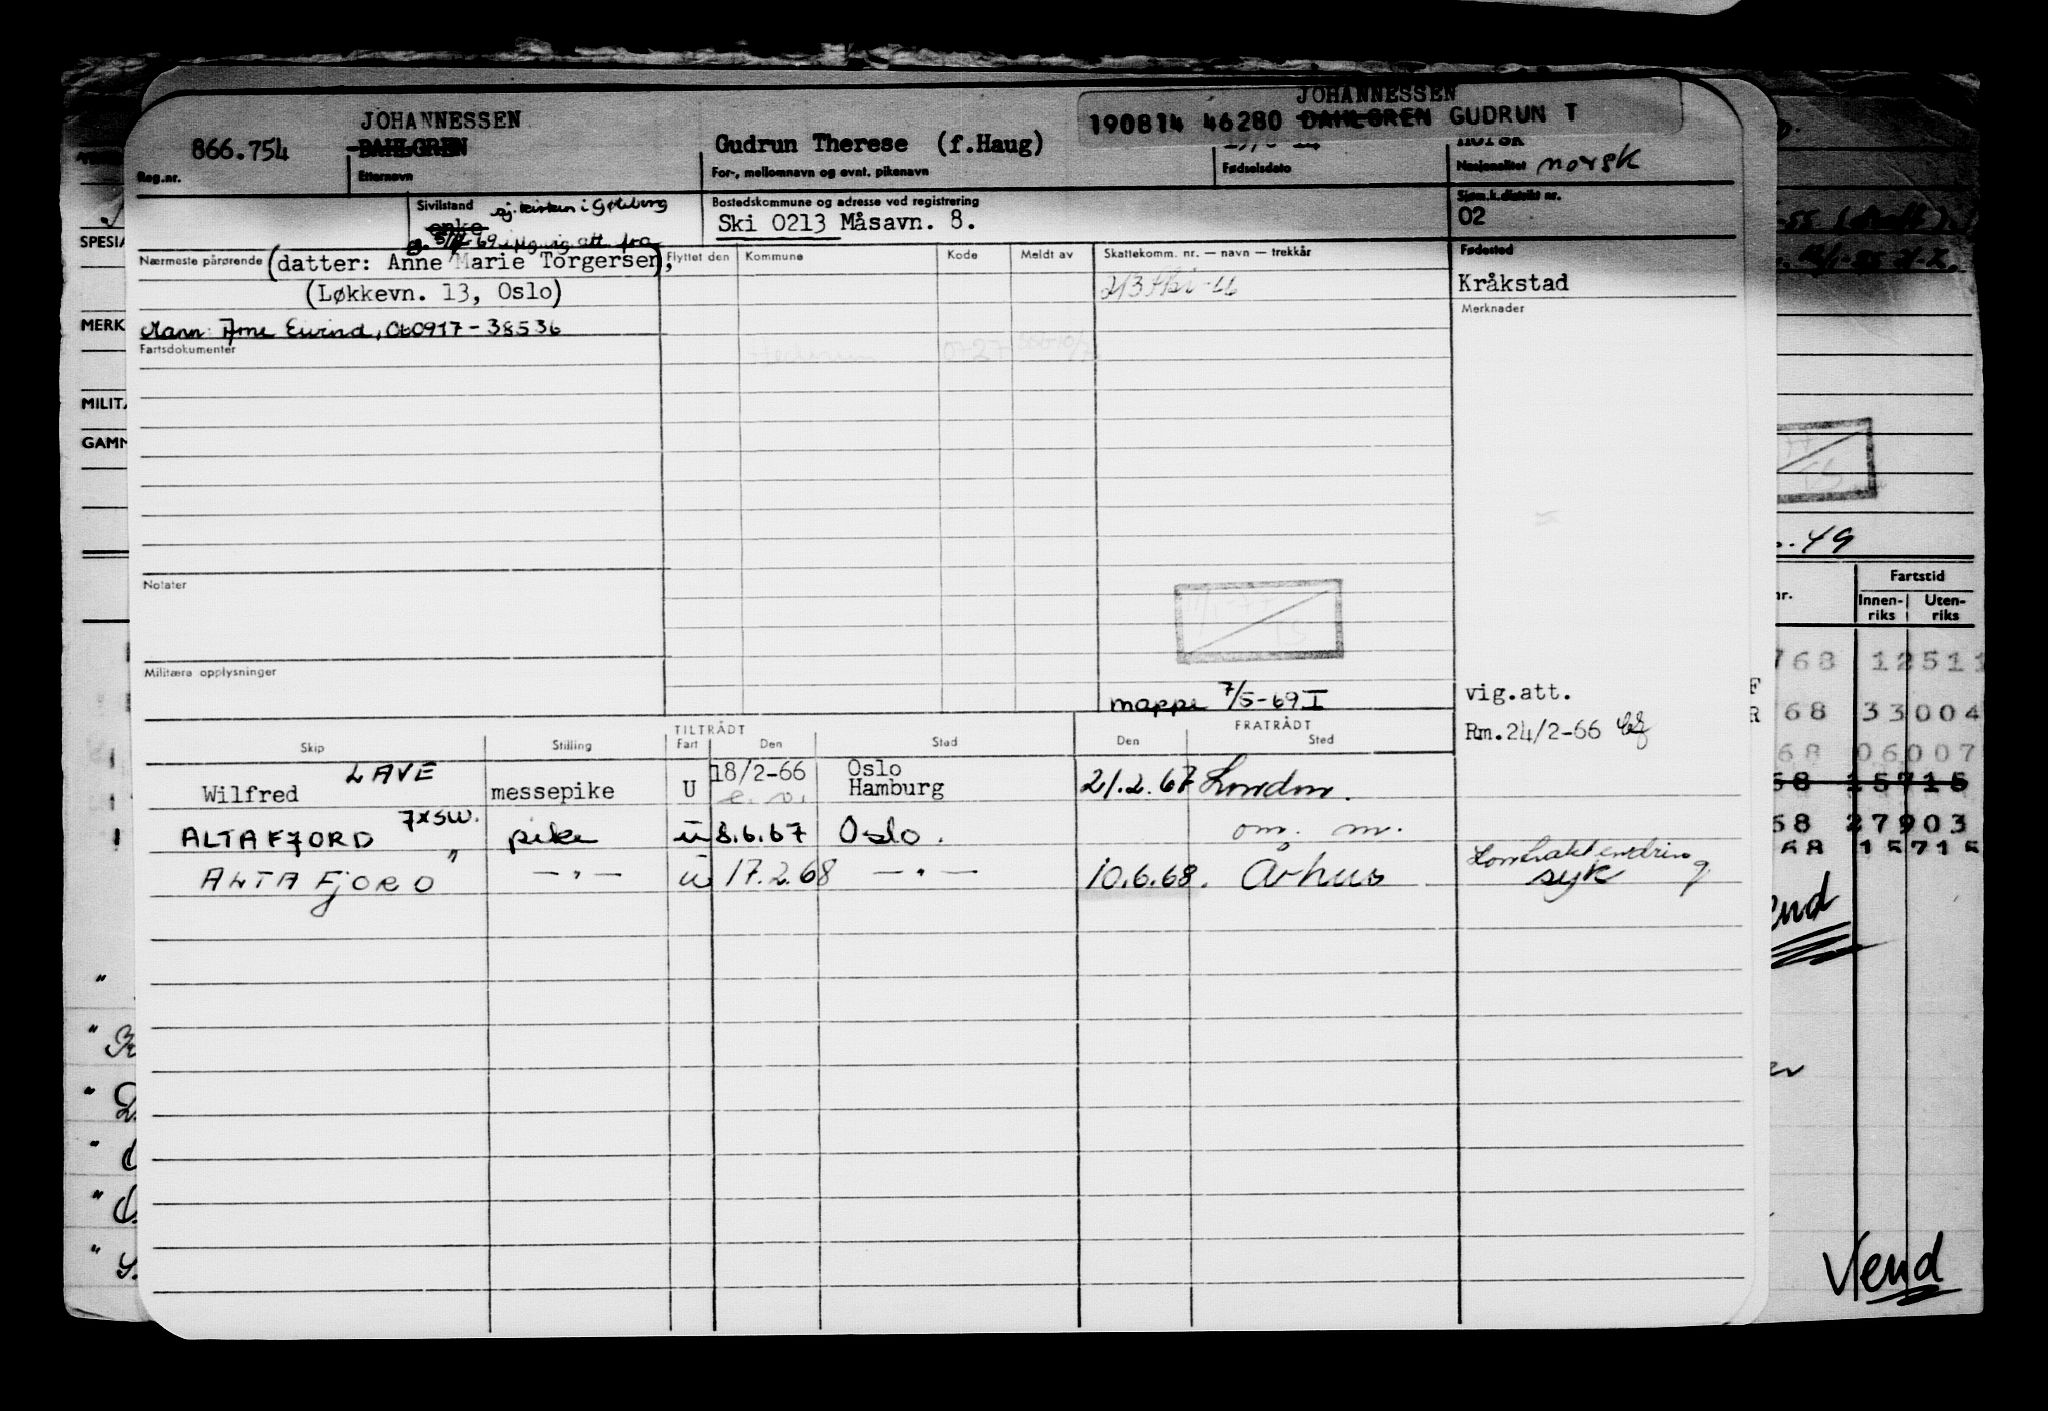 JOHANNESSEN
190814 46280 DAHLGREN GUDRUN T
866.754
JOHANNESSEN
DAHLGREN
Gudrun Therese (f.Haug)
norsk
Reg.nr.
Etternavn
For-, mellomnavn og evnt. pikenavn
Fødselsdato
Nasjonalitet norsk
Sivilstand
enke
sj.kirken i Gøteborg
Bostedskommune og adresse ved registrering
Ski 0213 Måsavn. 8.
Sjøm.k.distrikt nr.
02
Nærmeste pårørende (datter: Anne Marie Torgersen),
(Løkkevn. 13, Oslo)
Mann: Arne Eivind, 060917-38536
Flyttet den
Kommune
Kode
Meldt av
Skattekomm. nr. — navn — trekkår
213 Ski -66
Fødested
Kråkstad
Merknader
Fartsdokumenter
0727
Notater
Militære opplysninger
mappe 7/5-69 I
vig.att.
Rm.24/2-66
TILTRÅDT
FRATRÅDT
Skip
Stilling
Fart
Den
Sted
Den
Sted
Wilfred LAVE messepike U 18/2-66 Oslo Hamburg 21.2.67 London.
ALTAFJORD 7XSW. pike u 8.6.67 Oslo. om. m.
ALTAFJORD " —"— u 17.2.68 —"— 10.6.68. Århus
Kontraktendring
syk
SPESIA
MERK
MILITÆ
GAMM
. 49
nr.
Fartstid
Innen-riks
Uten-riks
768 12511
68 33004
68 06007
68 15715
68 27903
68 15715
Vend